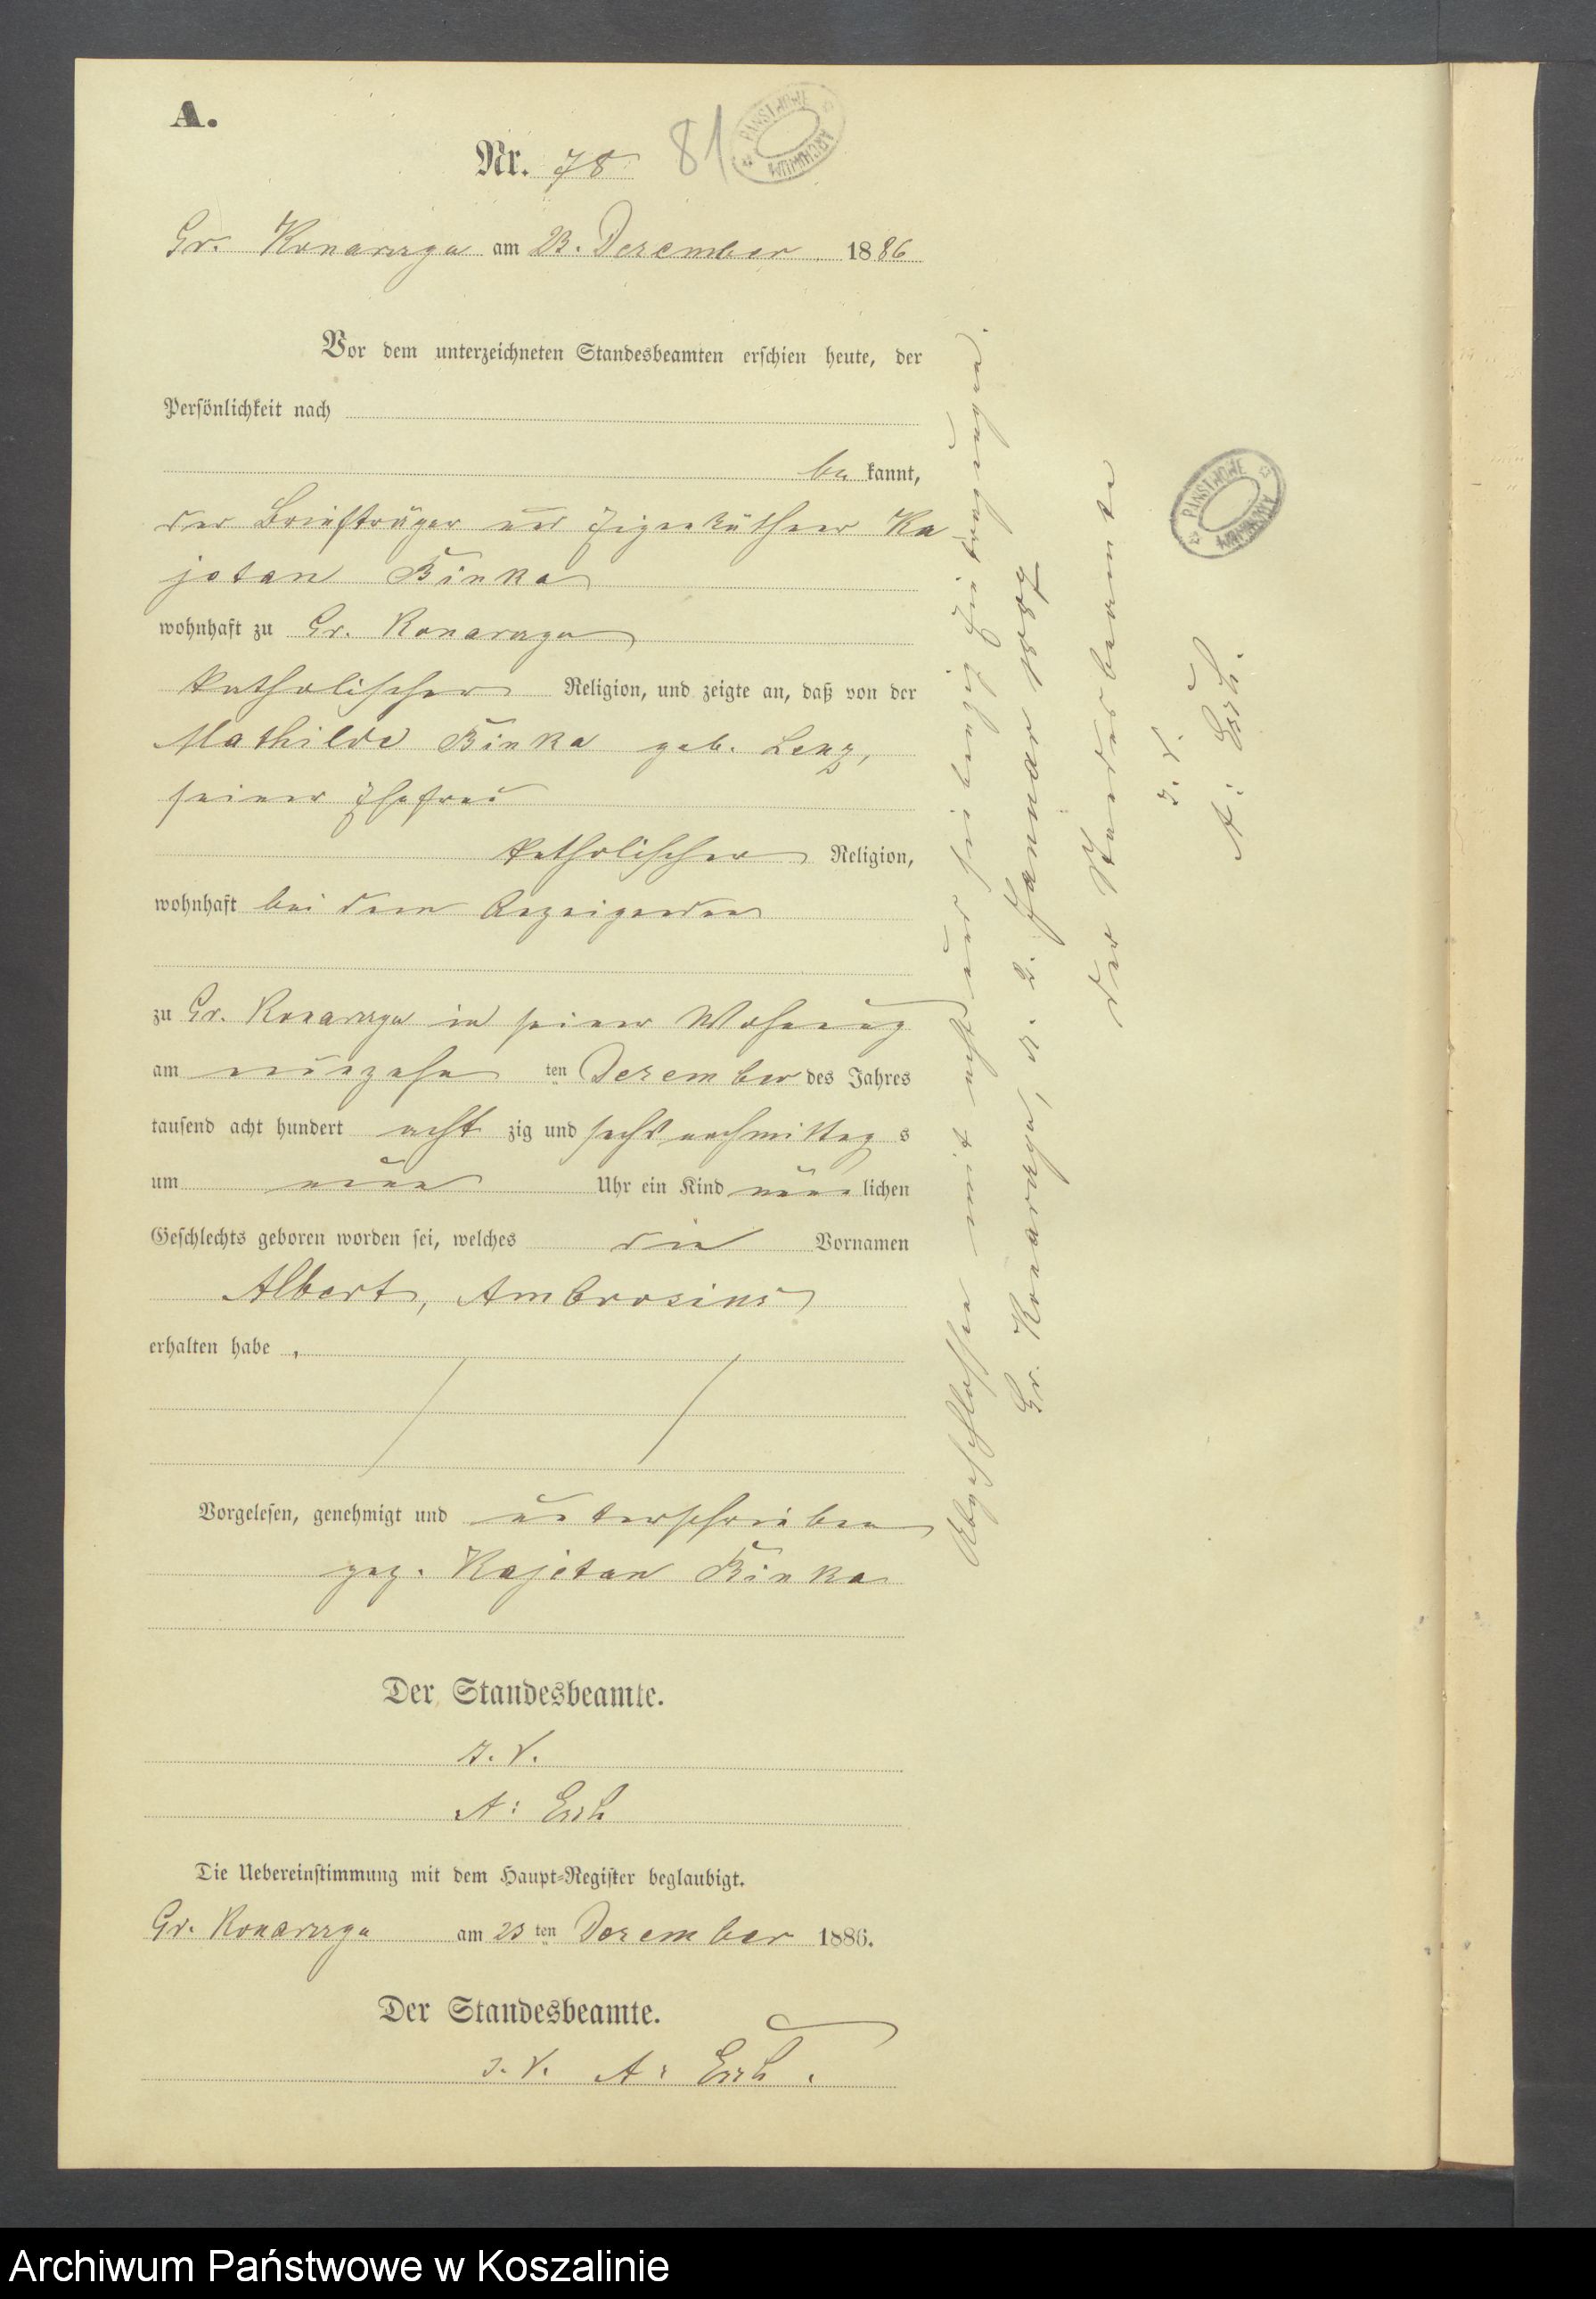 A.
Nr. 78
81
PAŃSTWOWE ARCHIWUM
Gr. Konarzyn am 23. Dezember 1886
Vor dem unterzeichneten Standesbeamten erschien heute, der
Persönlichkeit nach
be kannt,
der Briefträger und Eigenkäthner Ka
jetan Binka
wohnhaft zu Gr. Konarzyn
katholischer Religion, und zeigte an, daß von der
Mathilde Binka geb. Lenz,
seiner Ehefrau
katholischer Religion,
wohnhaft bei dem Anzeigenden
zu Gr. Konarzyn in seiner Wohnung
am neunzehn ten Dezember des Jahres
tausend acht hundert acht zig und sechs nachmittag s
um neun Uhr ein Kind männlichen
Geschlechts geboren worden sei, welches die Vornamen
Albert, Ambrosius
erhalten habe .
Vorgelesen, genehmigt und unterschrieben
gez. Kajetan Binka
Der Standesbeamte.
I. V.
A:
Die Uebereinstimmung mit dem Haupt-Register beglaubigt.
Gr. Konarzyn am 23 ten Dezember 1886.
Der Standesbeamte.
I. V. A:
Abgeschlossen mit acht und siebenzig Eintragungen.
Gr. Konarzyn, d. 2. Januar 1887
Der Standesbeamte
I. V.
A:
PAŃSTWOWE ARCHIWUM
Archiwum Państwowe w Koszalinie